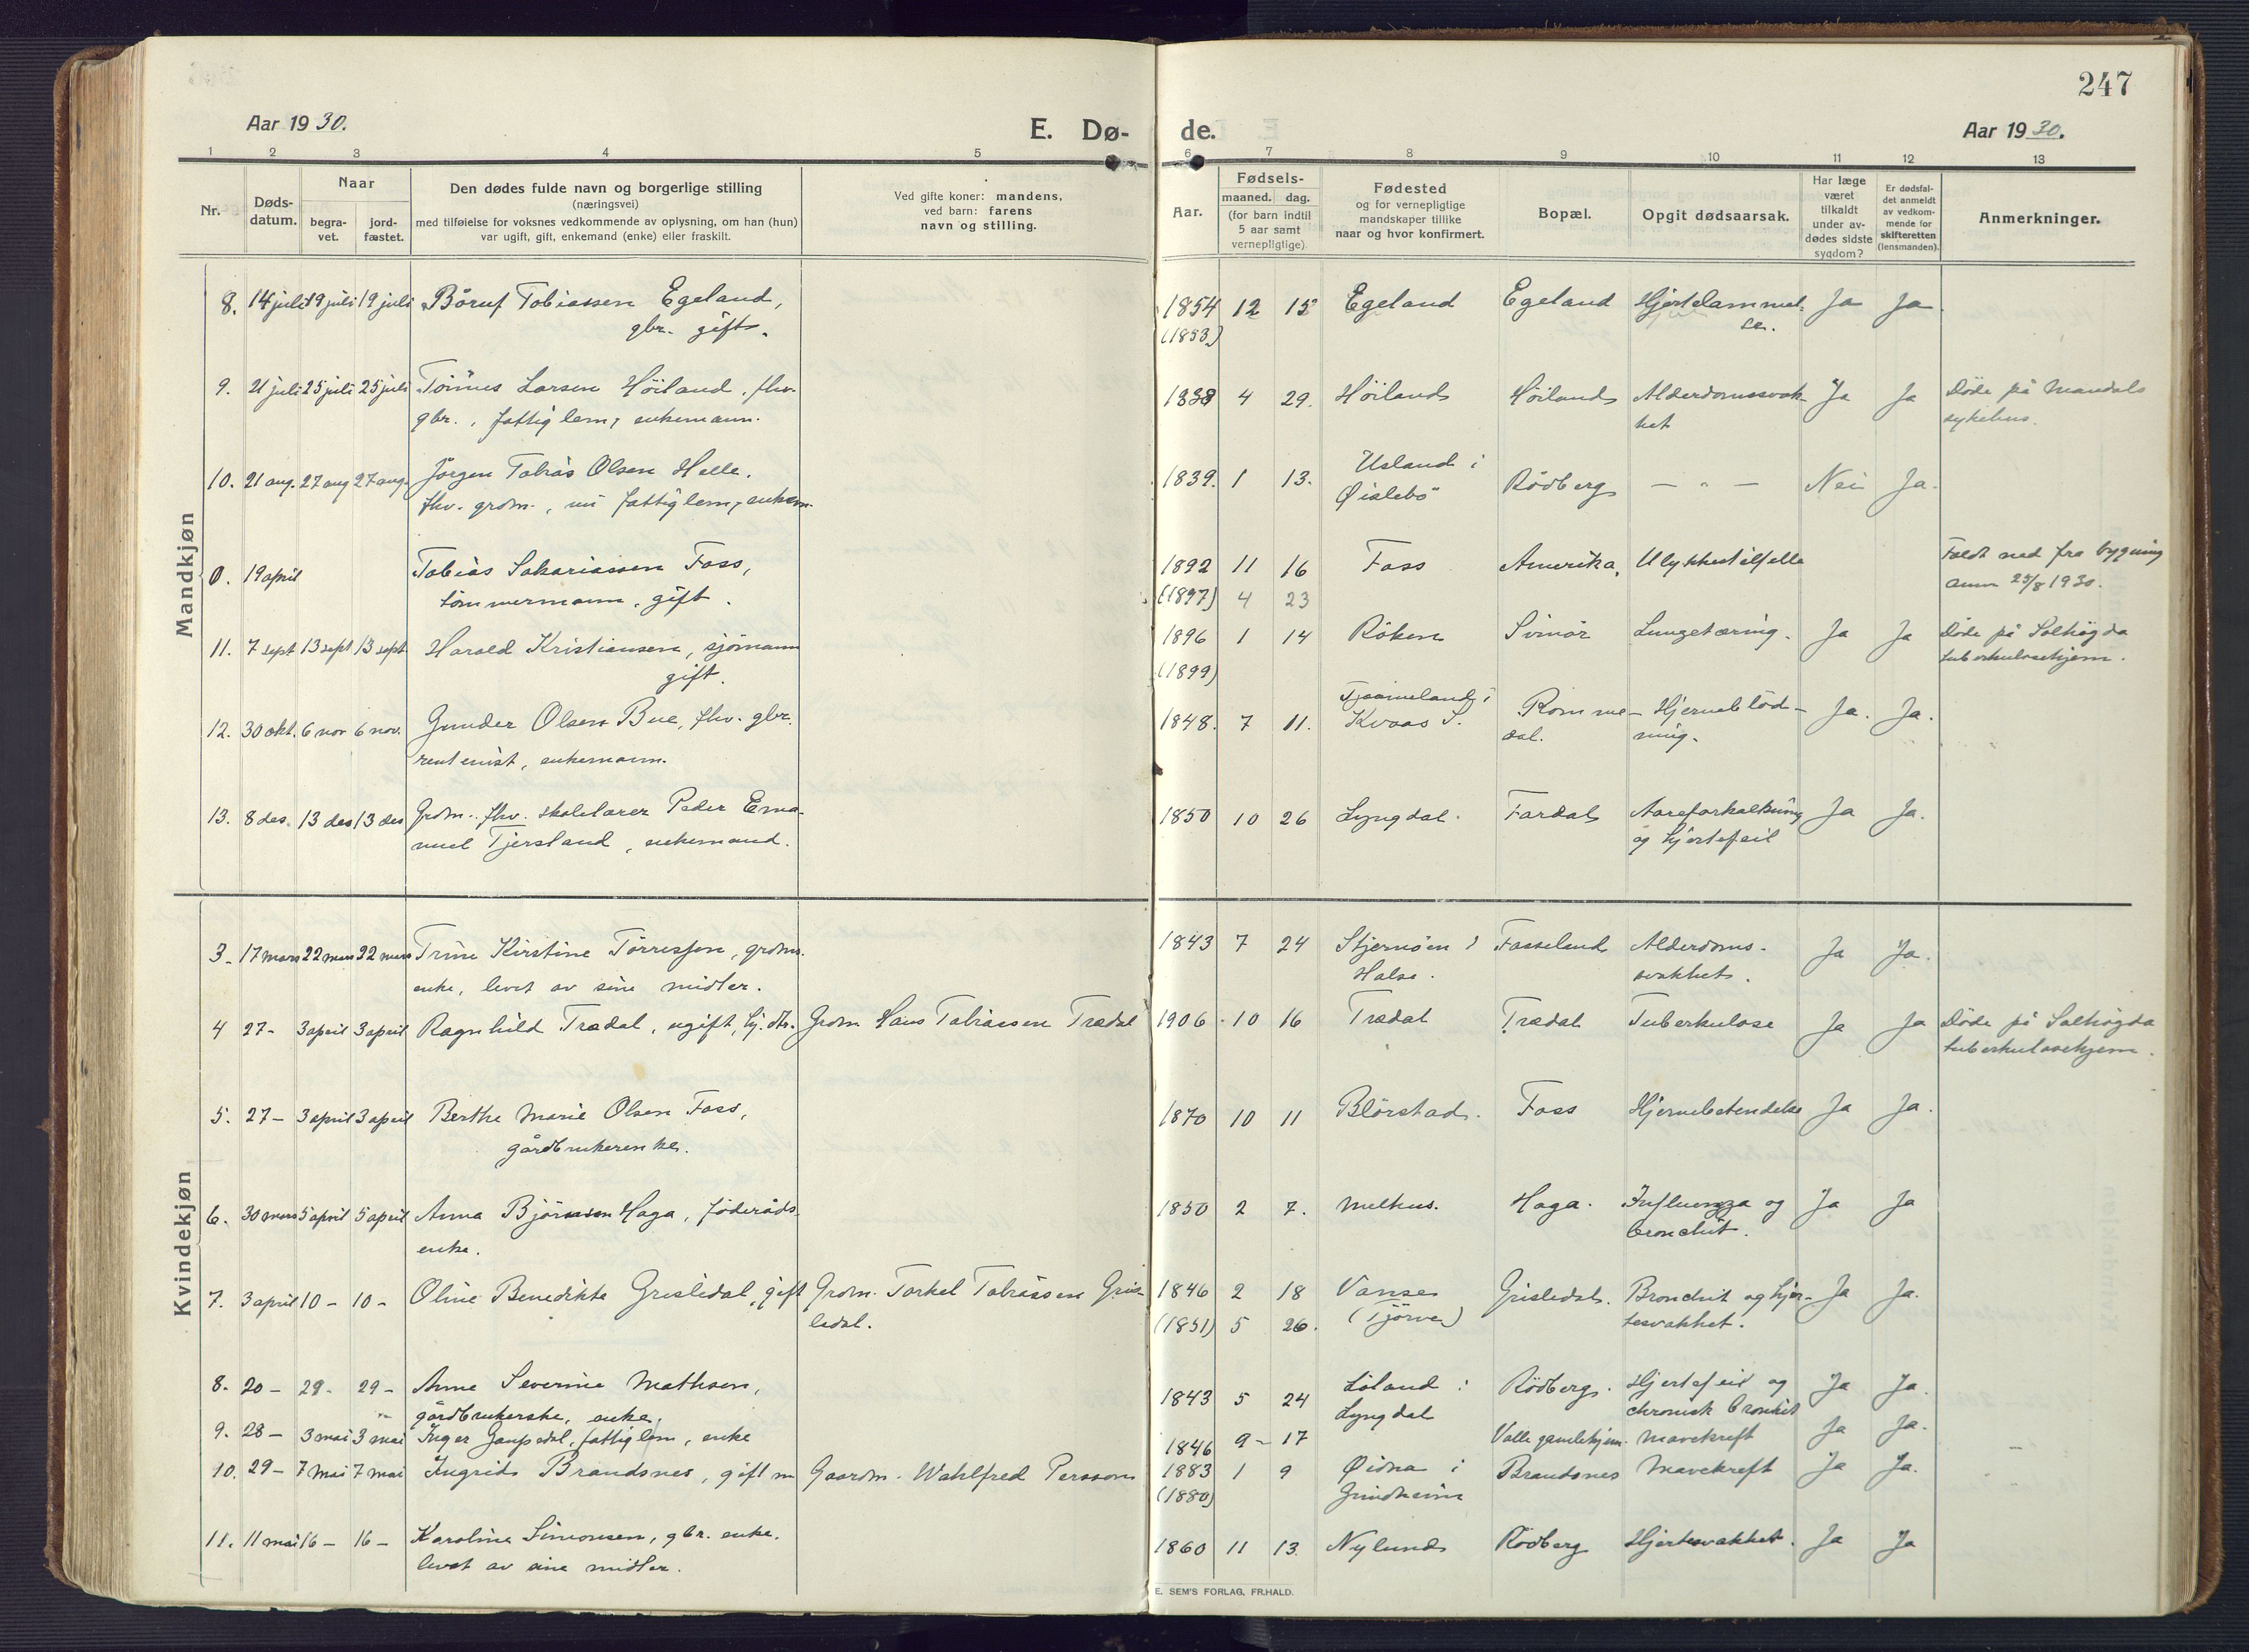 247
Aar 1930.
E. Dø-
de.
Aar 1930.
1 2 3 4 5 6 7 8 9 10 11 12 13
Nr.
Døds-
datum.
Naar
begra-
vet.
jord-
fæstet.
Den dødes fulde navn og borgerlige stilling
(næringsvei)
med tilføielse for voksnes vedkommende av oplysning, om han (hun)
var ugift, gift, enkemand (enke) eller fraskilt.
Ved gifte koner: mandens,
ved barn: farens
navn og stilling.
Aar.
Fødsels-
maaned. dag.
(for barn indtil
5 aar samt
vernepligtige)
Fødested
og for vernepligtige
mandskaper tillike
naar og hvor konfirmert.
Bopæl.
Opgit dødsaarsak.
Har læge
været
tilkaldt
under av-
dødes sidste
sygdom?
Er dødsfal-
det anmeldt
av vedkom-
mende for
skifteretten
(lensmanden).
Anmerkninger.
Mandkjøn
8. 14 juli 19 juli 19 juli Böruf Tobiassen Egeland, 1854 12 15 Egeland Egeland Hjertelammel- Ja Ja
gbr. gift. (1853) se.
9. 21 juli 25 juli 25 juli Tönnes Larsen Höiland, fhv. 1838 4 29. Höiland Höiland Alderdomssvak- Ja Ja Döde på Mandals
gbr., fattiglem, enkemann. het sykehus.
10. 21 aug. 27 aug 27 aug. Jörgen Tobias Olsen Helle, 1839. 1 13. Usland i Rödberg — " — Nei Ja.
fhv. grdm., nu fattiglem, enkem. Øislebö
0. 19 april Tobias Sakariassen Foss, 1892 11 16 Foss Amerika, Ulykkestilfelle Faldt ned fra bygning
tömmermann, gift. (1897) 4 23 anm 25/8 1930.
11. 7 sept 13 sept 13 sept Harald Kristiansen, sjömann 1896 1 14 Röken Svinör Lungetæring. Ja Ja Döde på Solhögda
gift. (1899) tuberkulosehjem.
12. 30 okt. 6 nov 6 nov. Gunder Olsen Bue, fhv. gbr. 1848. 7 11. Kvaas S. Romme- Hjerneblöd- Ja. Ja.
rentenist, enkemann. dal. ning.
13. 8 des. 13 des 13 des Grdm. fhv. skolelærer Peder Ema- 1850 10 26 Lyngdal. Fardal Aareforkalkning Ja Ja.
nuel Tjersland, enkemand. og hjertefeil
Kvindekjøn
3. 17 mars 22 mars 22 mars Trine Kirstine Törressen, grdms. 1843 7 24 Stjernöen i Fasseland Alderdoms- Ja Ja.
enke, levet av sine midler. Halse. svakhet.
4 27- 3 april 3 april Ragnhild Trædal, ugift, hj. dtr. Grdm. Hans Tobiassen Trædal 1906 10 16 Trædal Trædal Tuberkulose Ja Ja Döde på Solhögda
tuberkulosehjem.
5. 27- 3 april 3 april Berthe Marie Olsen Foss, 1870 10 11 Blörstad. Foss Hjernebetendelse Ja Ja.
gårdbrukerenke.
6. 30 mars 5 april 5 april Anna Björnsen Haga, föderåds 1850 2 7. Melhus. Haga. Influenza og Ja Ja
enke. bronchit.
7. 3 april 10- 10- Oline Benedikte Grisledal, gift Grdm. Torkel Tobiassen Gris- 1846 2 18 Vanse Grisledal. Bronchit og hjer- Ja Ja.
ledal. (1851) 5 26. (Tjörve) tesvakhet.
8. 20- 29- 29- Anne Severine Mathsen, 1843 5 24 Löland i Rödberg. Hjertefeil og Ja Ja.
gårdbrukerske, enke. Lyngdal chronisk bronkit
9. 28- 3 mai 3 mai Inger Gaupedal, fattiglem, enke 1846 9- 17 Valle gamlehjem. Mavekreft Ja Ja.
10. 29- 7 mai 7 mai Ingrid Brandsnes, gift m Gaardm. Wahlfred Persson 1883 1 9 Øidna i Brandsnes Mavekreft Ja Ja.
(1880) Grindheim
11. 11 mai 16- 16- Karoline Simonsen, gbr. enke. 1860 11 13. Nylund Rödberg Hjertesvakhet. Ja Ja
levet av sine midler.
E. SEM'S FORLAG, FR.HALD.